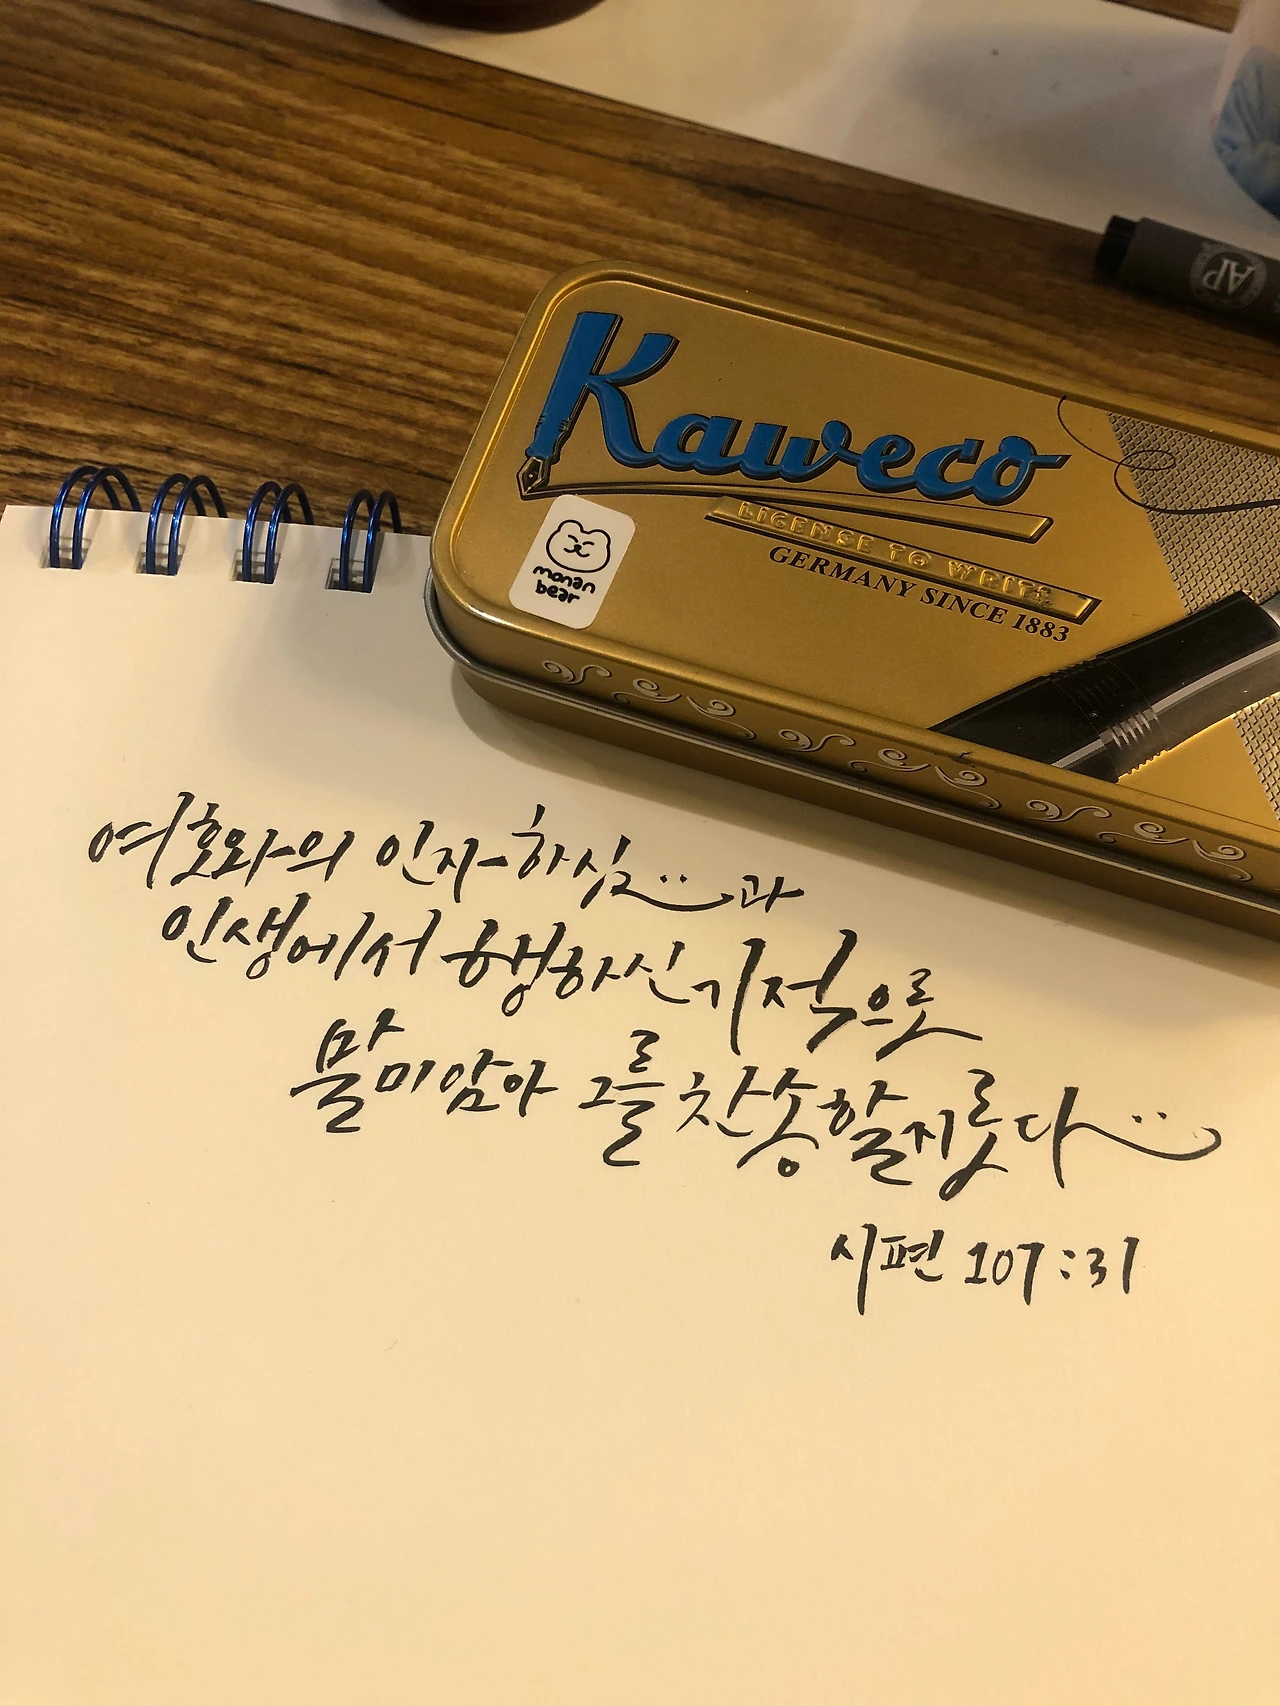 AP
Kaweco
LICENSE TO WRITE
GERMANY SINCE 1883
monan
bear
여호와의 인자하심과
인생에서 행하신 기적으로
말미암아 그를 찬송할지로다
시편 107:31